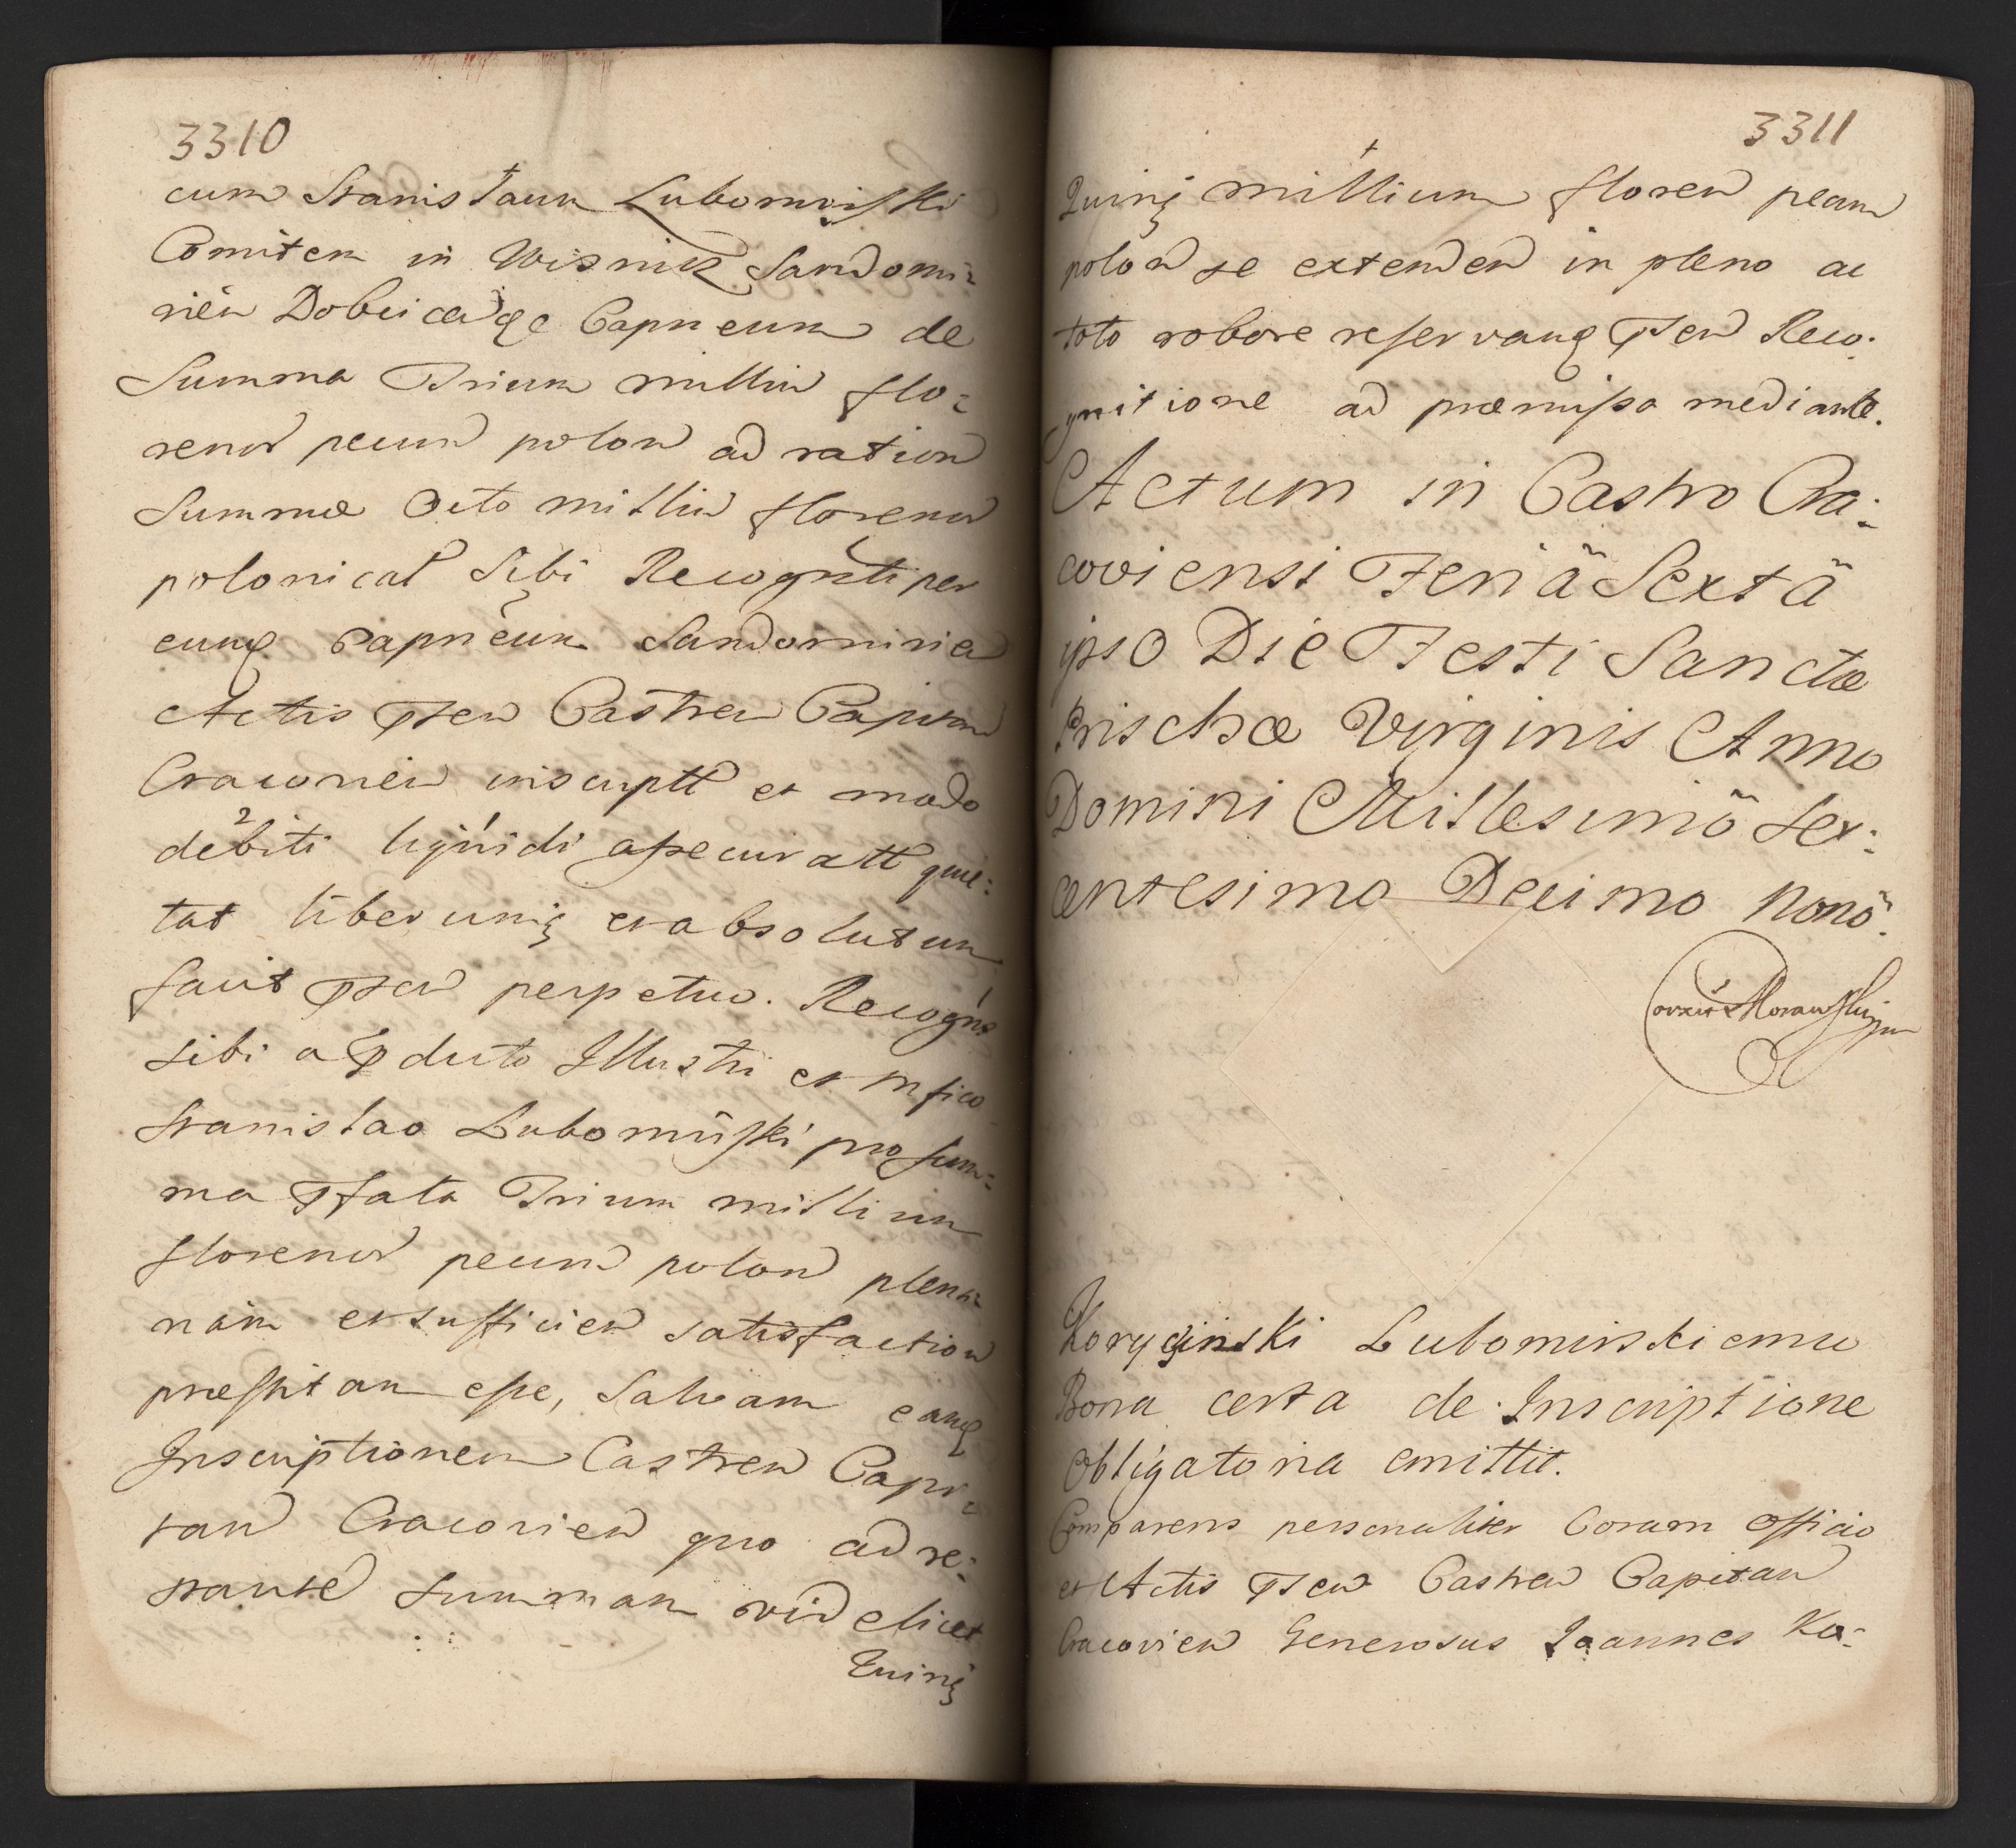 3310
cum Stanislaum Lubomirski
Comitem in Wisnicz Sandomi:
rien Dobcicen qe Capneum de
Summa Trium milliu flo:
renor pecun polon ad ration
Summæ Octo milliu florenor
polonical Sibi Recognti per
eunq Capneum Sandomirien
Actis pnten Castren Capitan
Cracovien inscriptt et modo
debiti liquidi assecuratt quie:
tat liberumq et absolutum
facit pnten perpetuo. Recogns
sibi a pducto Illustri et mfico
Stanislao Lubomirski pro sum:
ma pfata Trium millium
florenor pecun polon plena:
riam et sufficien satisfaction
præstitam esse, Salvam eanq
Inscriptionem Castren Capi:
tan Cracovien quo ad re:
stante Summam videlicet
Quinq
3311
Quinq millium floren pecun
polon se extenden in pleno ac
toto robore reservanq pnten Reco:
gnitione ad præmissa mediante.
Actum in Castro Cra:
coviensi Feriâ Sextâ
ipso Die Festi Sanctæ
Prischæ Virginis Anno
Domini Millesimô Sex:
centesimo Decimo Nonô.
Korycinski Lubomirskiemu
Bona certa de Inscriptione
Obligatoria emittit.
Comparens personaliter Coram Officio
et Actis pnten Castren Capitan
Cracovien Generosus Joannes Ko: